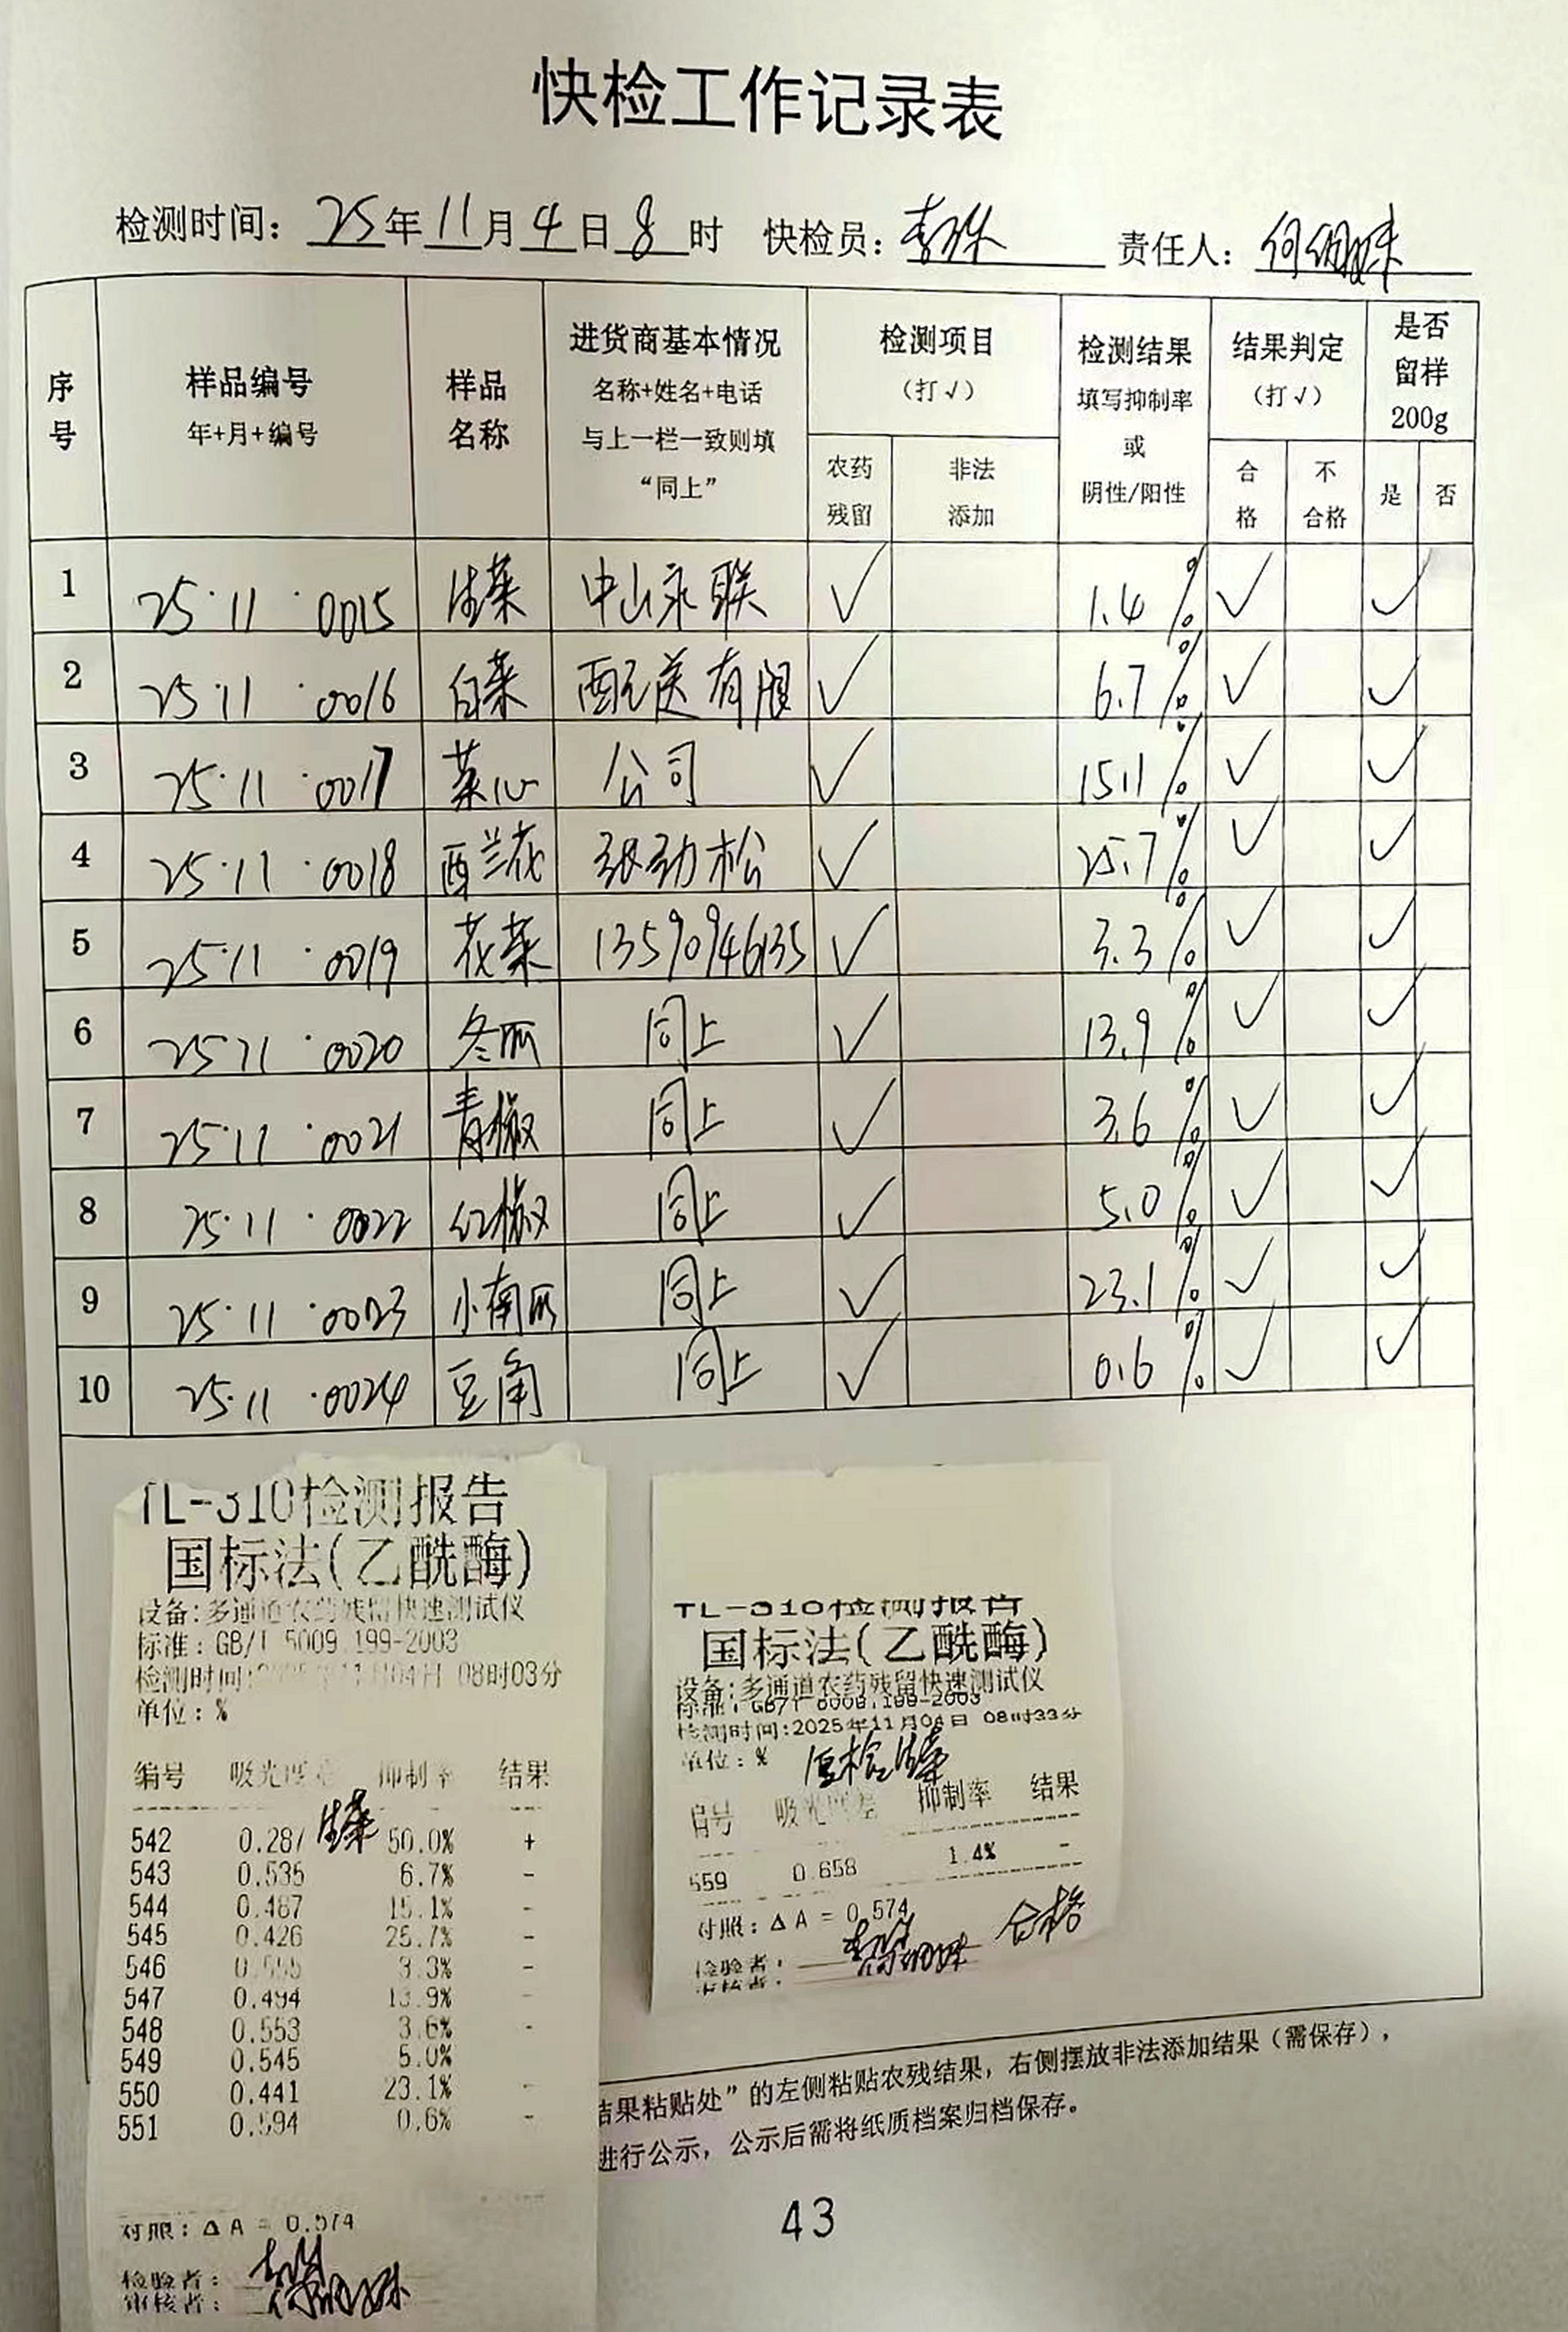 快检工作记录表
检测时间: 25年11月4日8时 快检员: 责任人:
序号 样品编号 年+月+编号 样品名称 进货商基本情况 名称+姓名+电话 与上一栏一致则填“同上” 检测项目(打√) 农药残留 非法添加 检测结果 填写抑制率或阴性/阳性 结果判定(打√) 合格 不合格 是否留样200g 是 否
1 25·11·0015 生菜 中山永联 √ 1.4% √ √
2 25·11·0016 白菜 配送有限 √ 6.7% √ √
3 25·11·0017 菜心 公司 √ 15.1% √ √
4 25·11·0018 西兰花 张劲松 √ 25.7% √ √
5 25·11·0019 花菜 13590946135 √ 3.3% √ √
6 25·11·0020 冬瓜 同上 √ 13.9% √ √
7 25·11·0021 青椒 同上 √ 3.6% √ √
8 25·11·0022 红椒 同上 √ 5.0% √ √
9 25·11·0023 小南瓜 同上 √ 23.1% √ √
10 25·11·0024 豆角 同上 √ 0.6% √ √
TL-310检测报告
国标法(乙酰酶)
设备:多通道农药残留快速测试仪
标准:GB/T 5009.199-2003
检测时间:2025年11月04日 08时03分
单位:%
编号 吸光度差 抑制率 结果
542 0.287 生菜 50.0% +
543 0.535 6.7% -
544 0.487 15.1% -
545 0.426 25.7% -
546 0.555 3.3% -
547 0.494 13.9% -
548 0.553 3.6% -
549 0.545 5.0%
550 0.441 23.1% -
551 0.594 0.6% -
对照:ΔA = 0.574
检验者:
审核者:
TL-310检测报告
国标法(乙酰酶)
设备:多通道农药残留快速测试仪
标准:GB/T 5009.199-2003
检测时间:2025年11月04日 08时33分
单位:% 复检生菜
编号 吸光度差 抑制率 结果
559 0.658 1.4% -
对照:ΔA = 0.574 合格
检验者:
审核者:
结果粘贴处”的左侧粘贴农残结果，右侧摆放非法添加结果（需保存），
进行公示，公示后需将纸质档案归档保存。
43